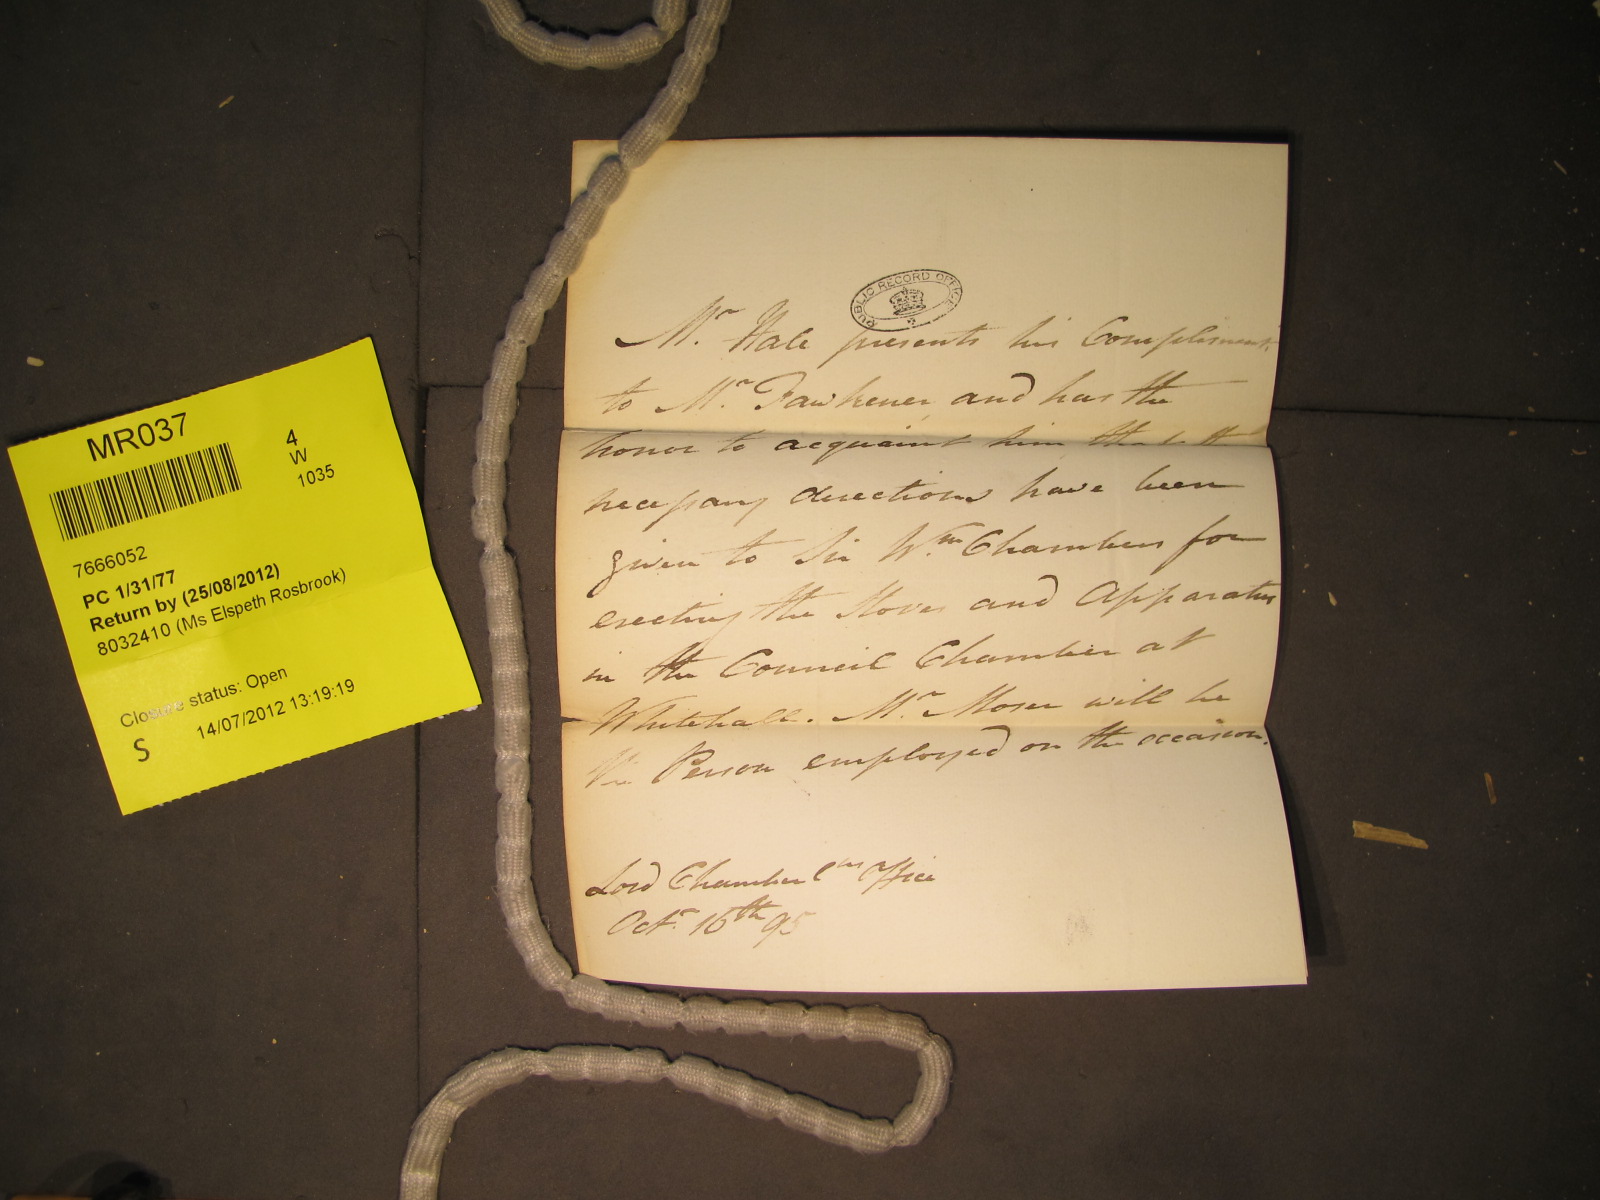 MR037
4
W
1035
7666052
PC 1/31/77
Return by (25/08/2012)
8032410 (Ms Elspeth Rosbrook)
Closure status: Open
S 14/07/2012 13:19:19
PUBLIC RECORD OFFICE
Mr. Hale presents his Compliments
to Mr. Fawkener and has the
honor to acquaint him that the
necessary directions have been
given to Sir Wm Chambers for
erecting the Stoves and Apparatus
in the Council Chamber at
Whitehall. Mr. Moser will be
the Person employed on the occasion.
Lord Chamberlns Office
Octr. 16th 95